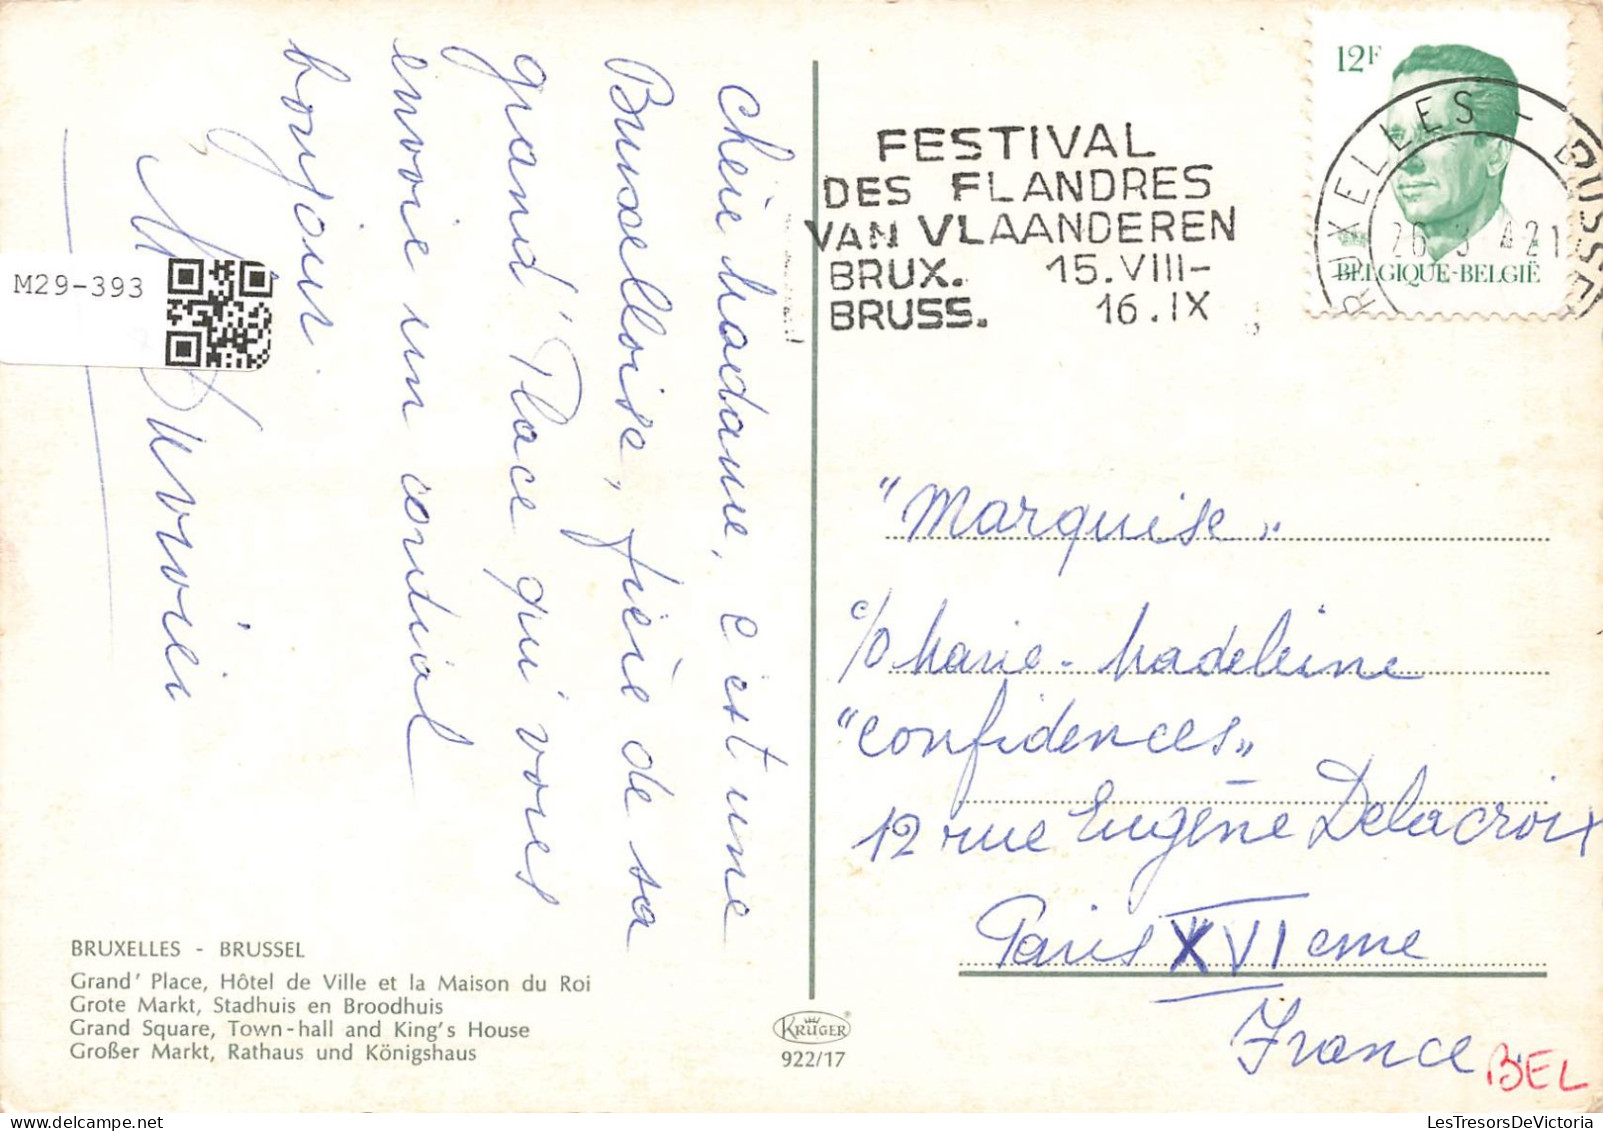 Chère Madame, c'est une
Bruxelloise, fière de sa
grand' Place qui vous
envoie un cordial
bonjour.
M29-393
BRUXELLES - BRUSSEL
Grand' Place, Hôtel de Ville et la Maison du Roi
Grote Markt, Stadhuis en Broodhuis
Grand Square, Town-hall and King's House
Großer Markt, Rathaus und Königshaus
KRÜGER
922/17
FESTIVAL
DES FLANDRES
VAN VLAANDEREN
BRUX. 15.VIII-
BRUSS. 16.IX
12F
BELGIQUE-BELGIË
BRUXELLES - BRUSSEL
"Marquise"
c/o Marie-Madeleine
"Confidences"
12 rue Eugène Delacroix
Paris XVIeme
France
BEL
LesTresorsDeVictoria